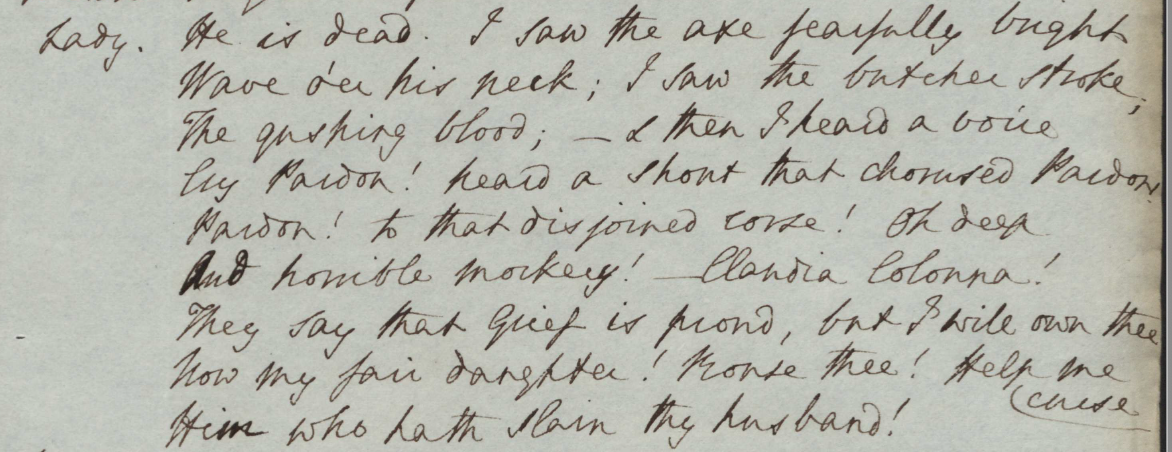 Lady. He is dead. I saw the axe fearfully bright
Wave o'er his neck; I saw the butcher stroke,
The gushing blood; — & then I heard a voice
Cry Pardon! heard a shout that chorused Pardon!
Pardon! to that disjoined corse! Oh deep
And horrible mockery! — Claudia Colonna!
They say that Grief is proud, but I will own thee
Now my fair daughter! Rouse thee! Help me
(curse
Him who hath slain thy husband!